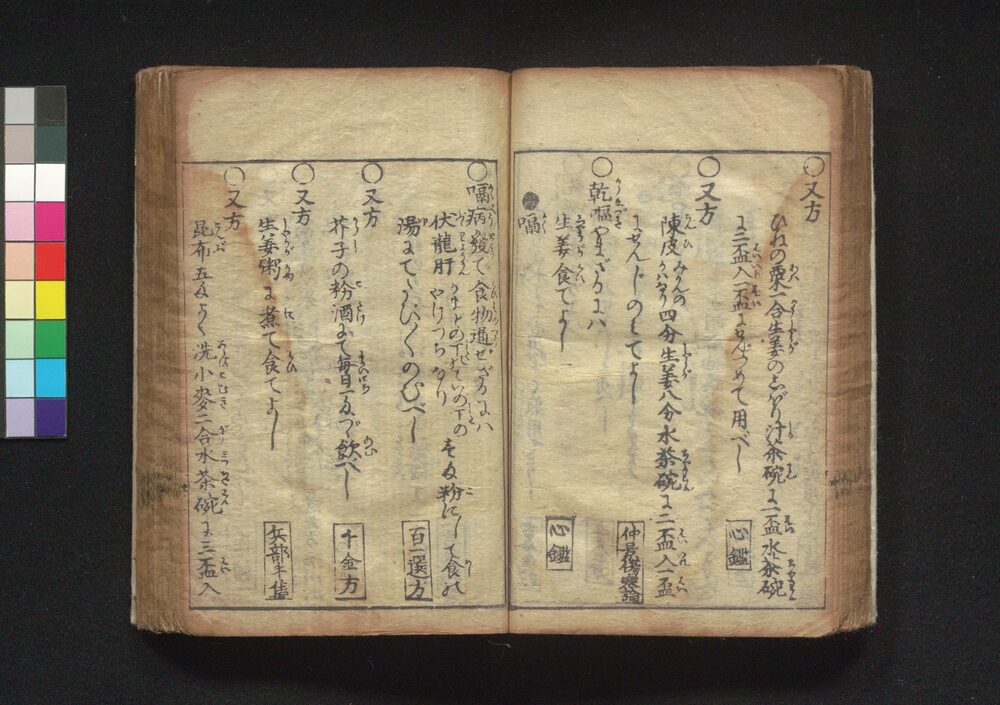 ○又方
ひねの粟一合生姜のしぼり汁茶碗に一盃水茶碗
に二盃入一盃にせんじつめて用べし
心鑑
○又方
陳皮みかんのかハなり四分生姜八分水茶碗に二盃入一盃
にせんじのミてよし
仲景傷寒論
○乾嘔やまざるにハ
生姜食てよし
心鑑
●嗝
○嗝病發て食物通せざるにハ
伏龍肝かまどの下れいの下のやけつちなり
壱匁粉にして食の
湯にてたびたびのむべし
百一選方
○又方
芥子の粉酒にて毎日一匁づゝ飲べし
千金方
○又方
生姜粥に煮て食てよし
兵部手集
○又方
昆布五匁よく洗小麥二合水茶碗に三盃入